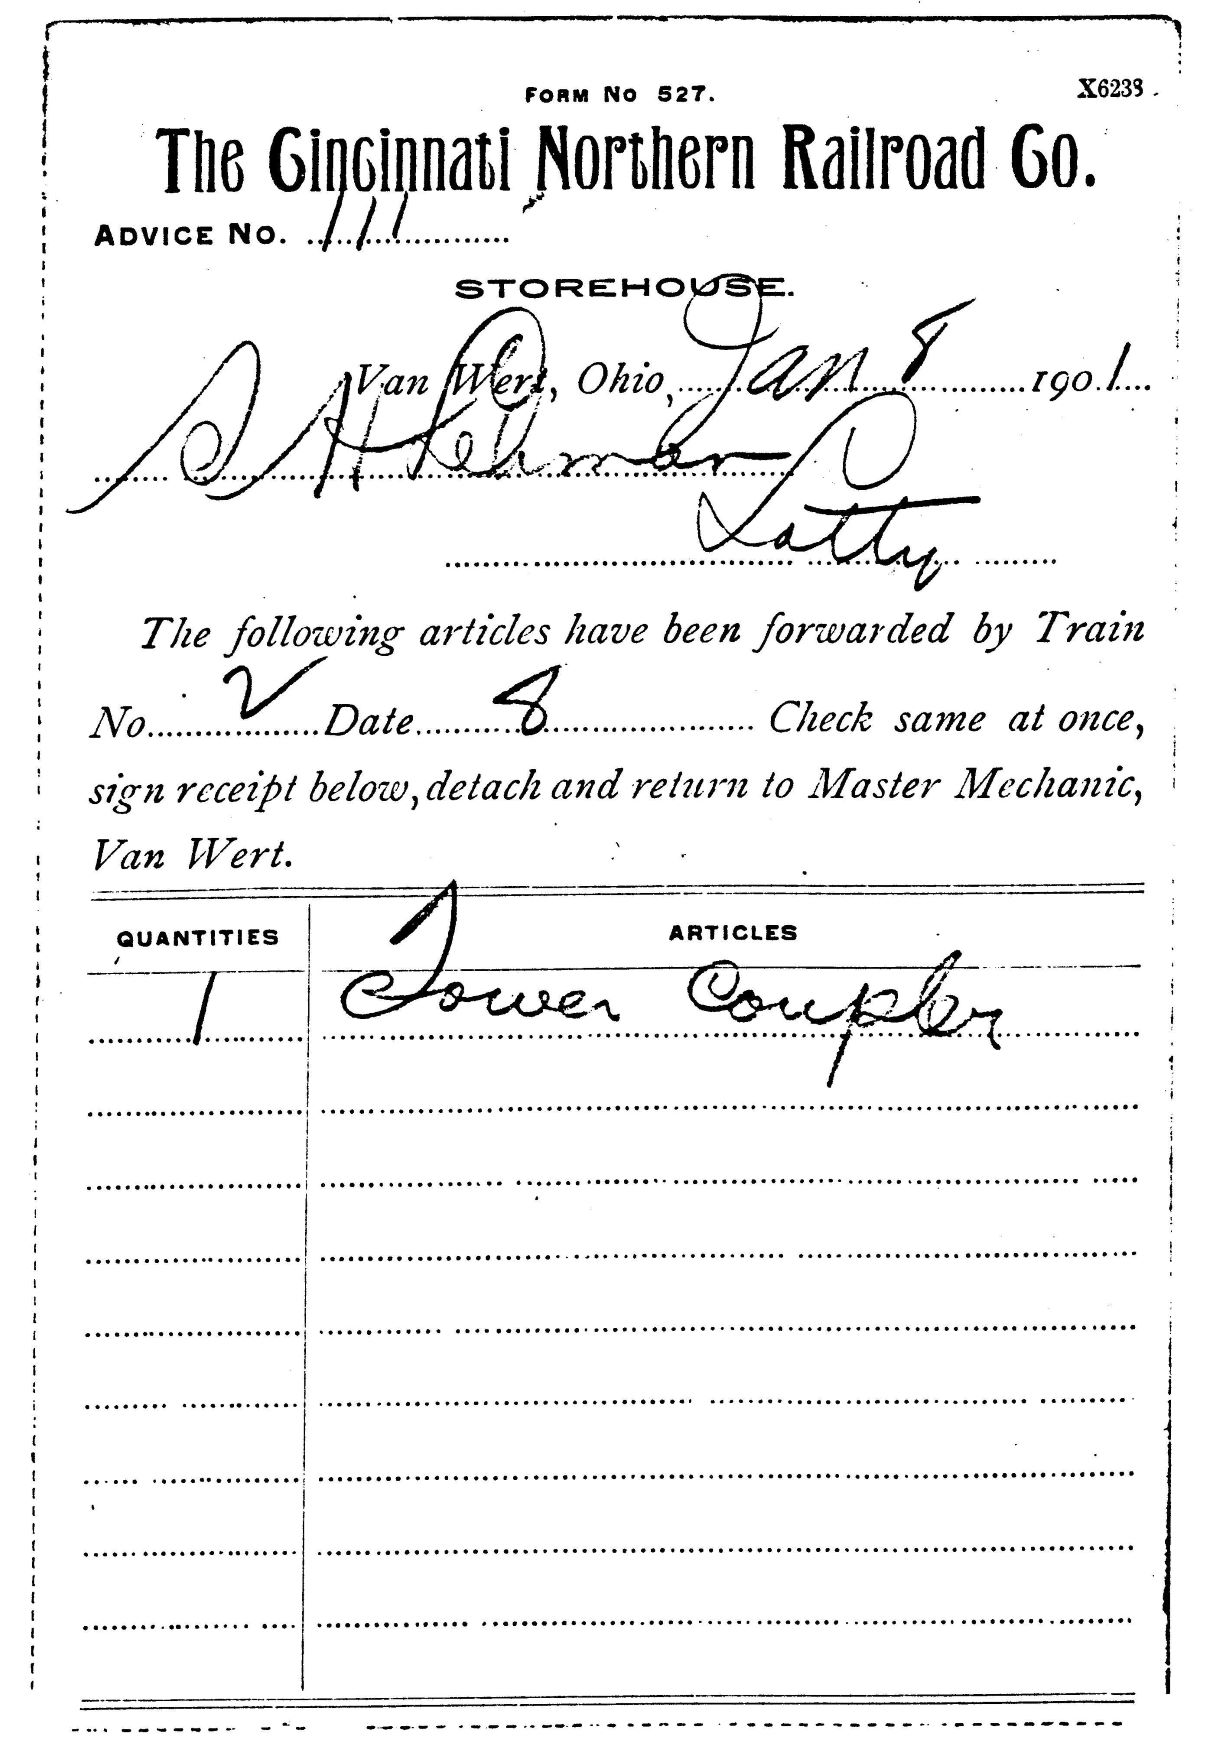 FORM NO 527.
X6238.
The Cincinnati Northern Railroad Co.
ADVICE NO. 111
STOREHOUSE.
Van Wert, Ohio, Jan 8 1901
S H Lehman
Latty
The following articles have been forwarded by Train
No. 2 Date 8 Check same at once,
sign receipt below, detach and return to Master Mechanic,
Van Wert.
QUANTITIES ARTICLES
1 Tower Coupler